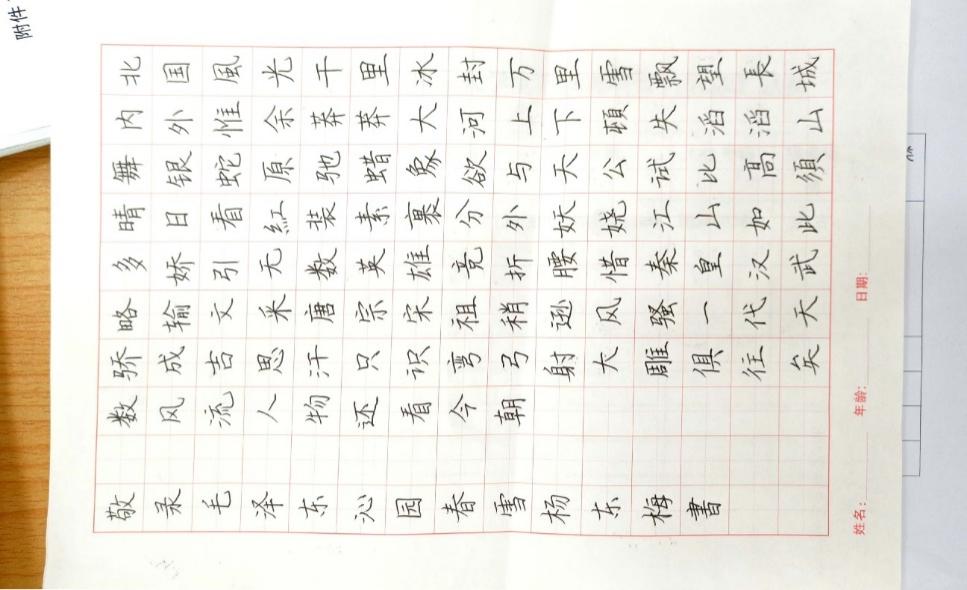 附件
北国風光千里冰封万里雪飘望長城
内外惟余莽莽大河上下頓失滔滔山
舞银蛇原驰蜡象欲与天公试比高須
晴日看紅装素裹分外妖娆江山如此
多娇引无数英雄竞折腰惜秦皇汉武
略输文采唐宗宋祖稍逊风骚一代天
骄成吉思汗只识弯弓射大雕俱往矣
数风流人物还看今朝
敬录毛泽东沁园春雪杨东梅書
姓名: 年龄: 日期: